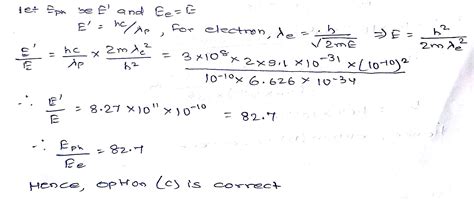 let Eph be E' and Ee = E
E' = hc/λp, for electron, λe = h/√2mE ⇒ E = h²/2mλe²
E'/E = hc/λp × 2mλe²/h² = 3×10⁸×2×9.1×10⁻³¹×(10⁻¹⁰)²/10⁻¹⁰×6.626×10⁻³⁴
∴ E'/E = 8.27×10¹¹×10⁻¹⁰ = 82.7
∴ Eph/Ee = 82.7
Hence, option (c) is correct